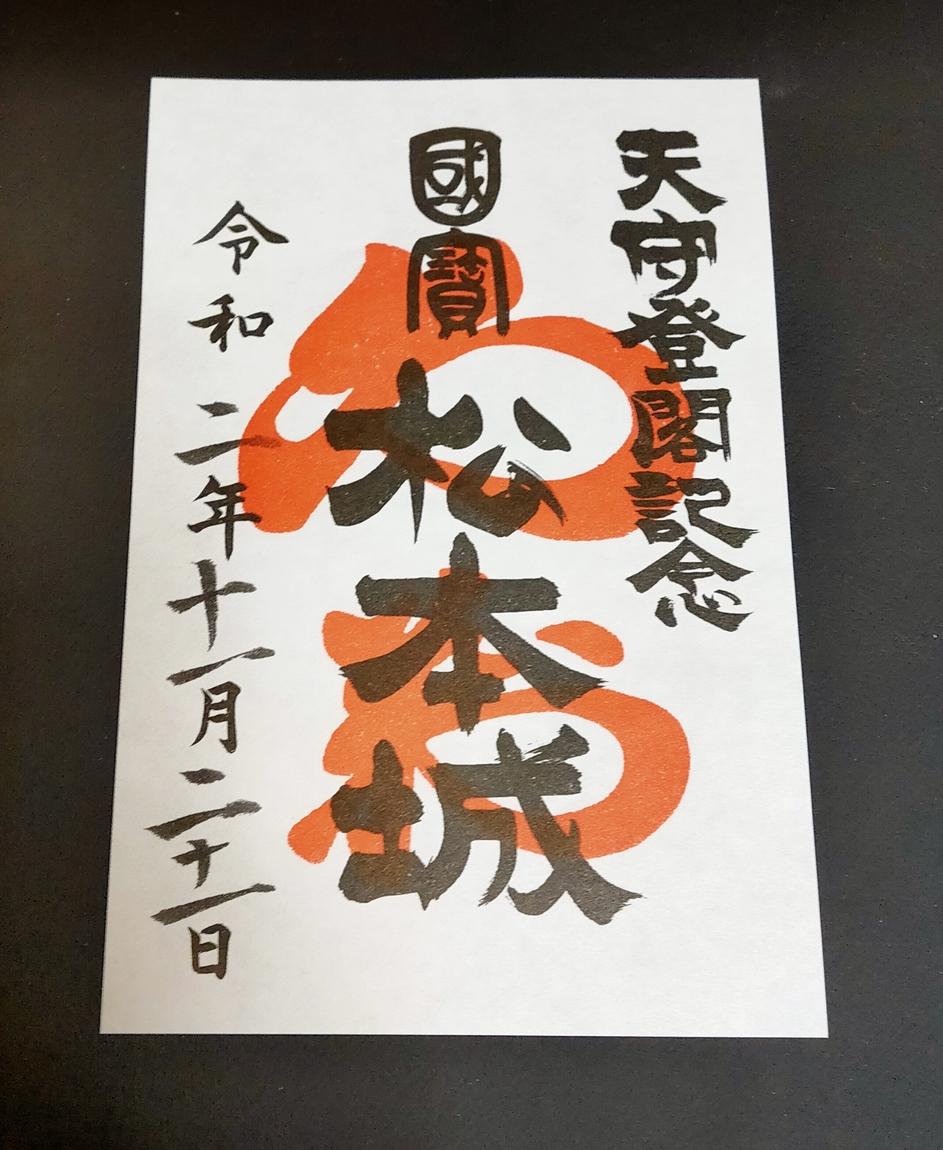 天守登閣記念
國寶
松本城
令和二年十一月二十一日